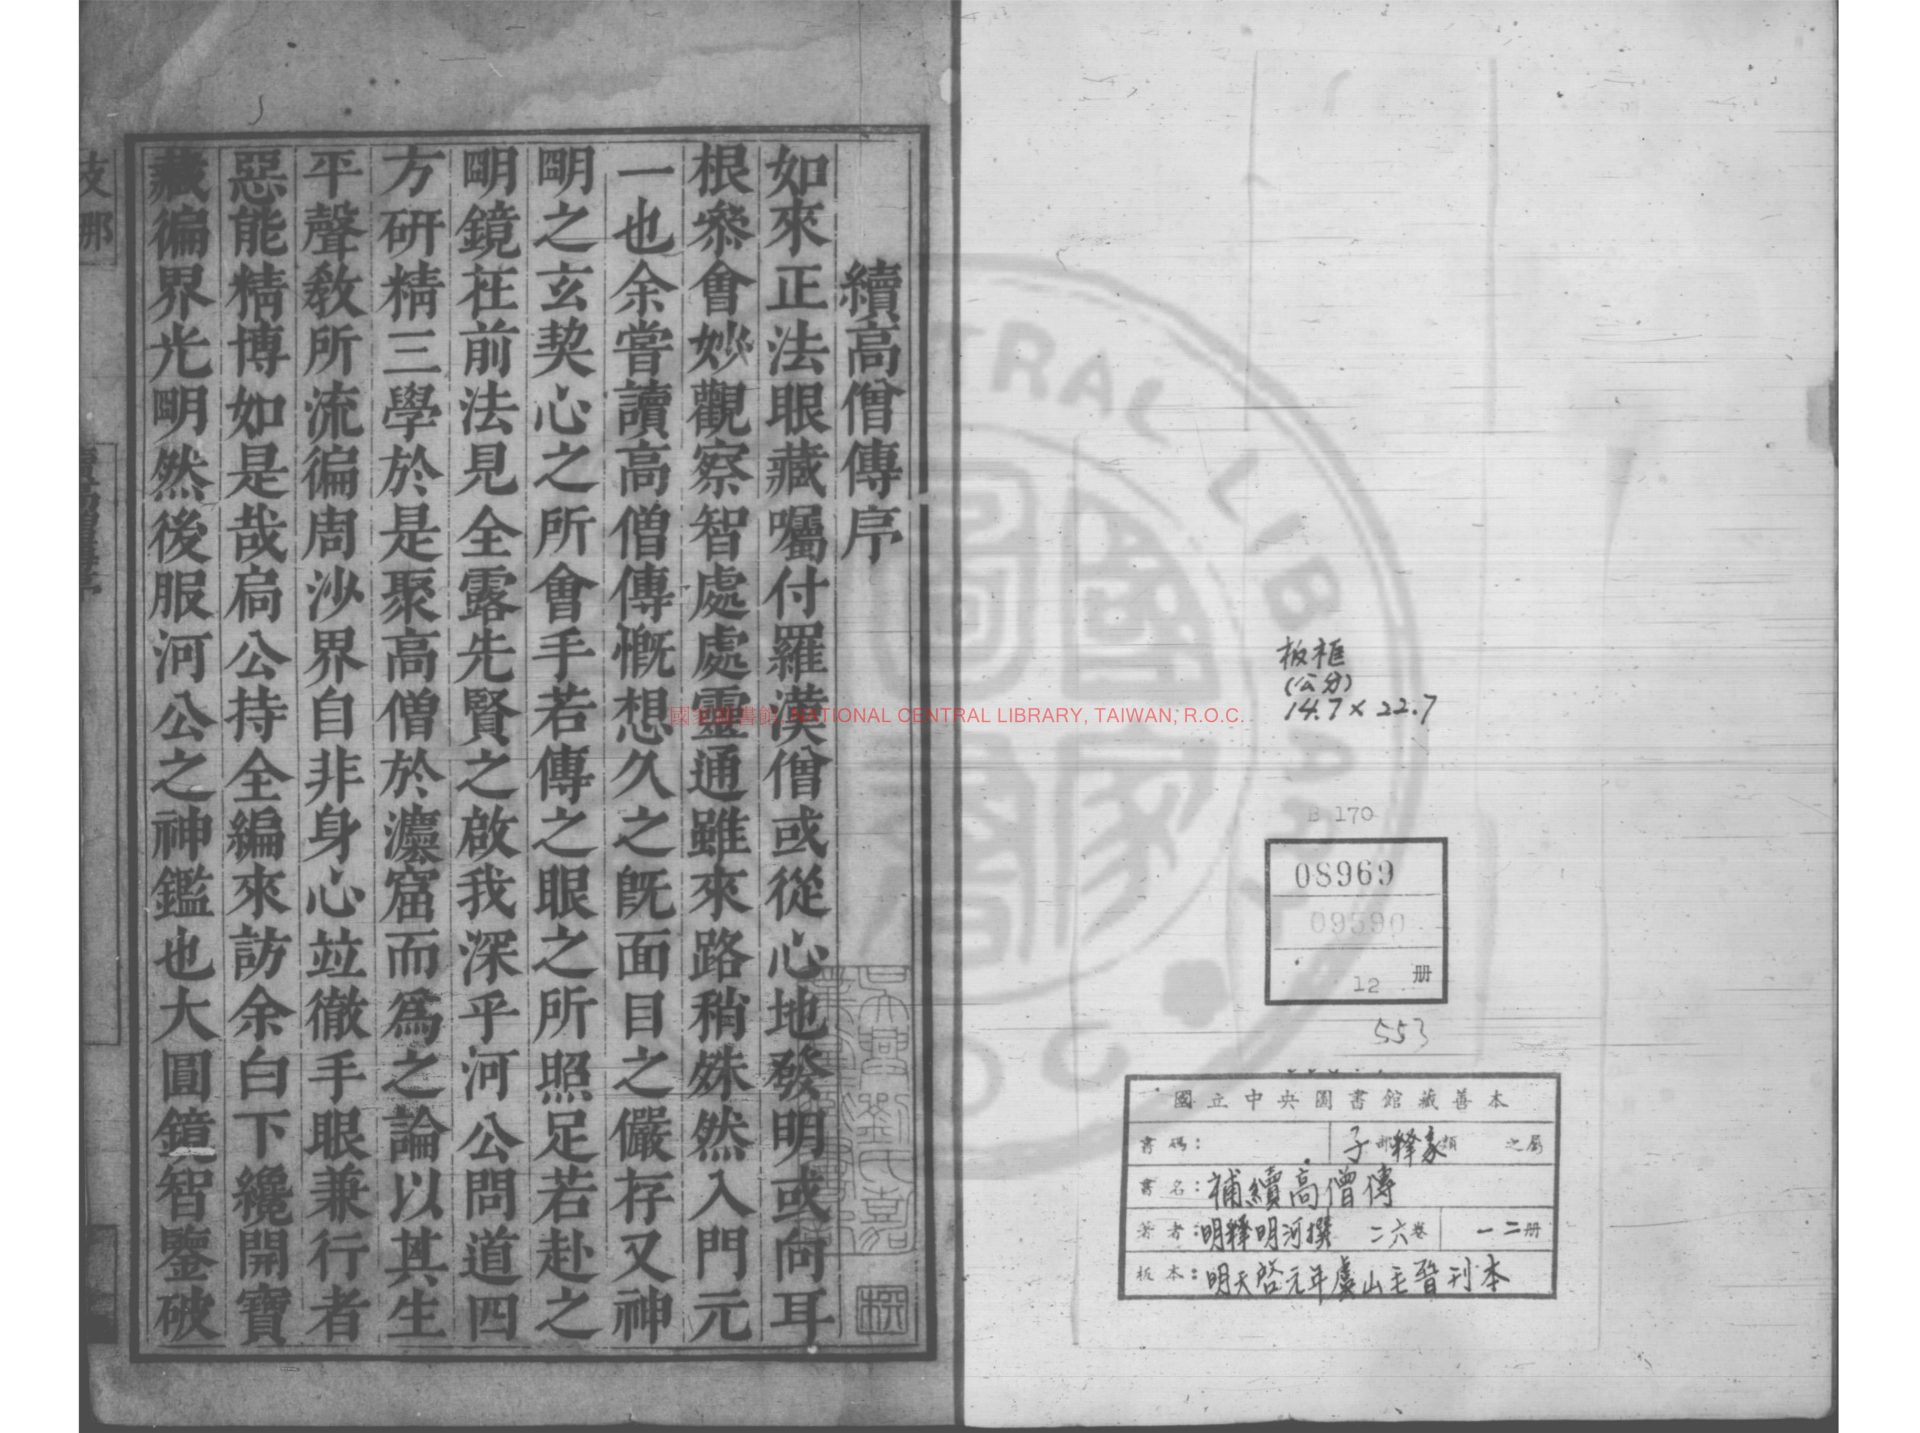 續高僧傳序
如來正法眼藏囑付羅漢僧或從心地發明或向耳
根叅會妙觀察智處處靈通雖來路稍殊然入門元
一也余嘗讀高僧傳慨想久之旣面目之儼存又神
明之玄契心之所會手若傳之眼之所照足若赴之
明鏡在前法見全露先賢之啟我深乎河公問道四
方研精三學於是聚高僧於灋窟而爲之論以其生
平聲教所流徧周沙界自非身心竝徹手眼兼行者
惡能精博如是哉扃公持全編來訪余白下纔開寶
藏徧界光明然後服河公之神鑑也大圓鏡智鑒破
支那
板框
(公分)
14.7×22.7
B 170
08969
09590
12 册
553
國立中央圖書館藏善本
書碼： 子部釋家類 之屬
書名：補續高僧傳
著者：明釋明河撰 二六卷 一二册
板本：明天啓元年虞山毛晉刊本
國家圖書館, NATIONAL CENTRAL LIBRARY, TAIWAN, R.O.C.